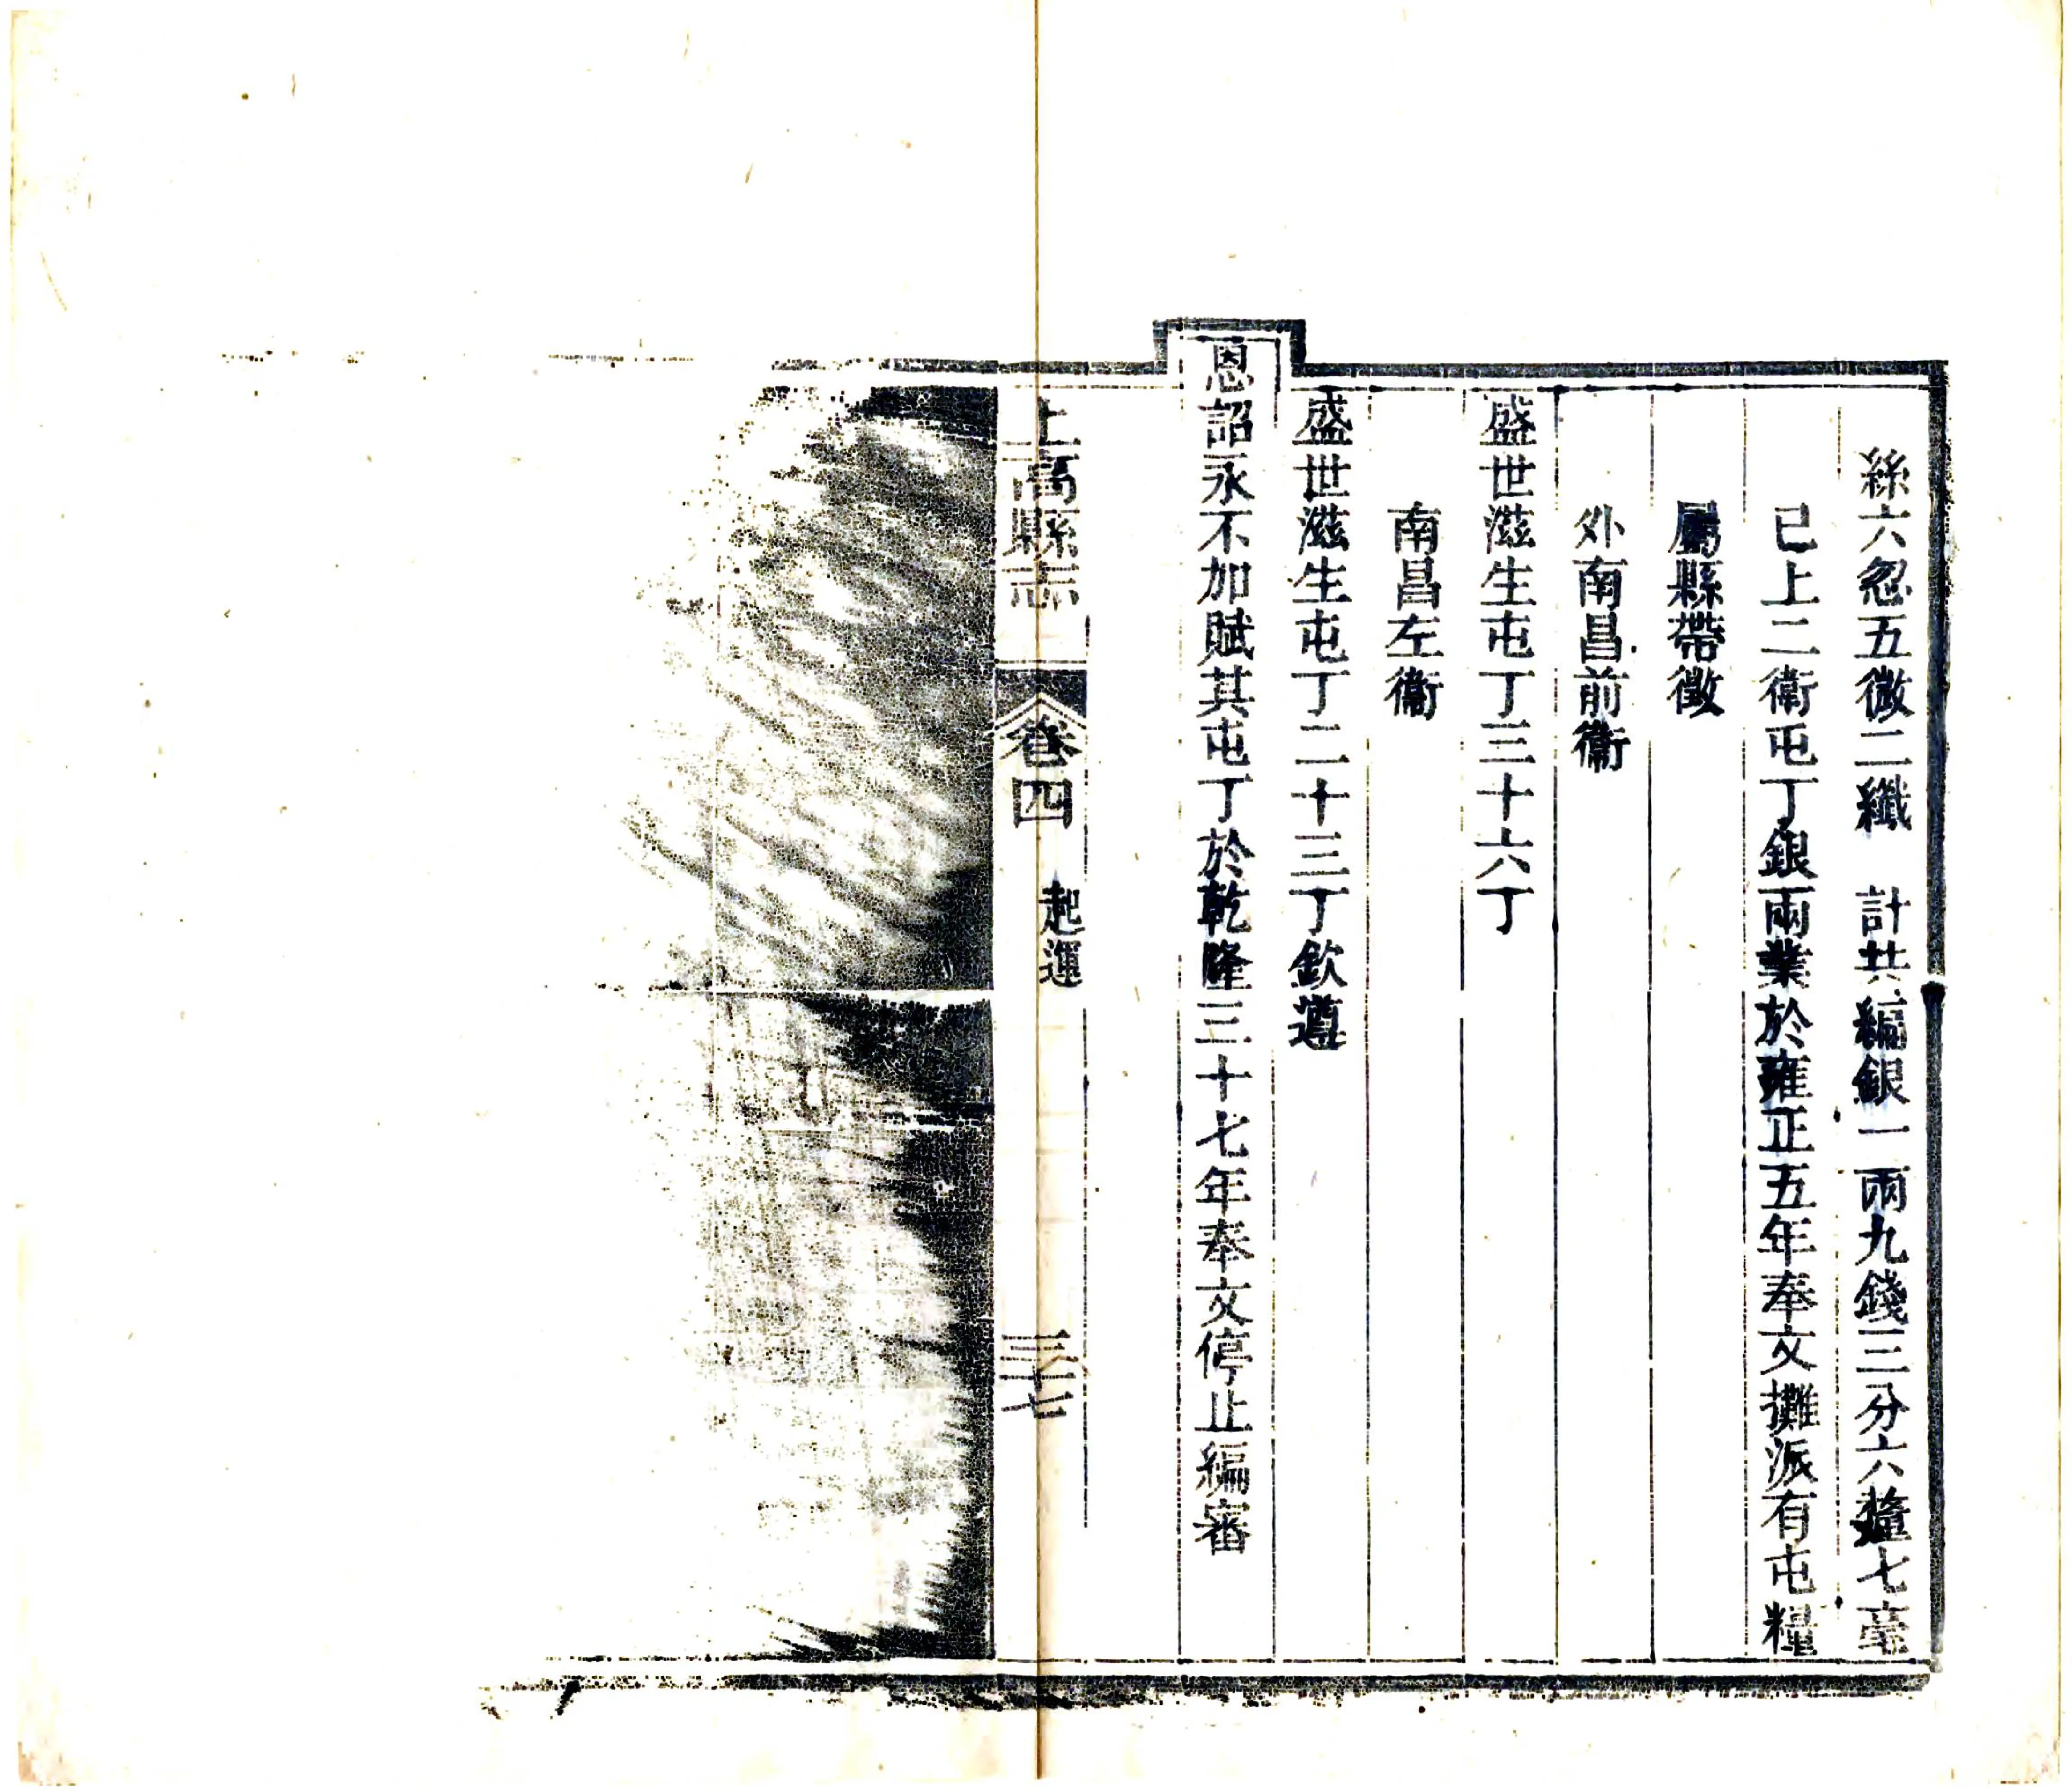 絲六忽五微二纖　計共編銀一兩九錢三分六釐七毫
已上二衛屯丁銀兩業於雍正五年奉文攤派有屯糧
屬縣帶徵
外南昌前衞
盛世滋生屯丁三十六丁
南昌左衞
盛世滋生屯丁二十三丁欽遵
恩詔永不加賦其屯丁於乾隆三十七年奉文停止編審
上高縣志　卷四　起運　三十七